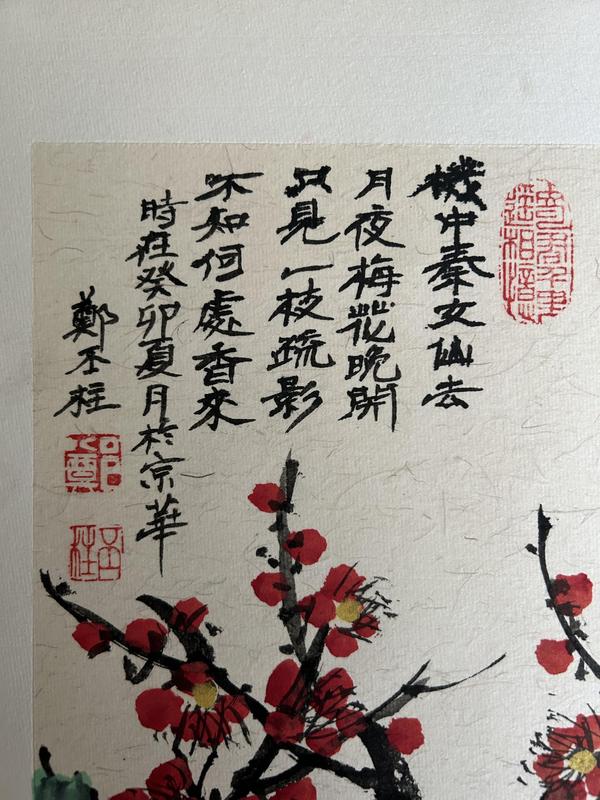 機中秦女仙去
月夜梅花晚開
只見一枝疏影
不知何處香來
時在癸卯夏月於京華
鄭丕柱
鄭
丕柱